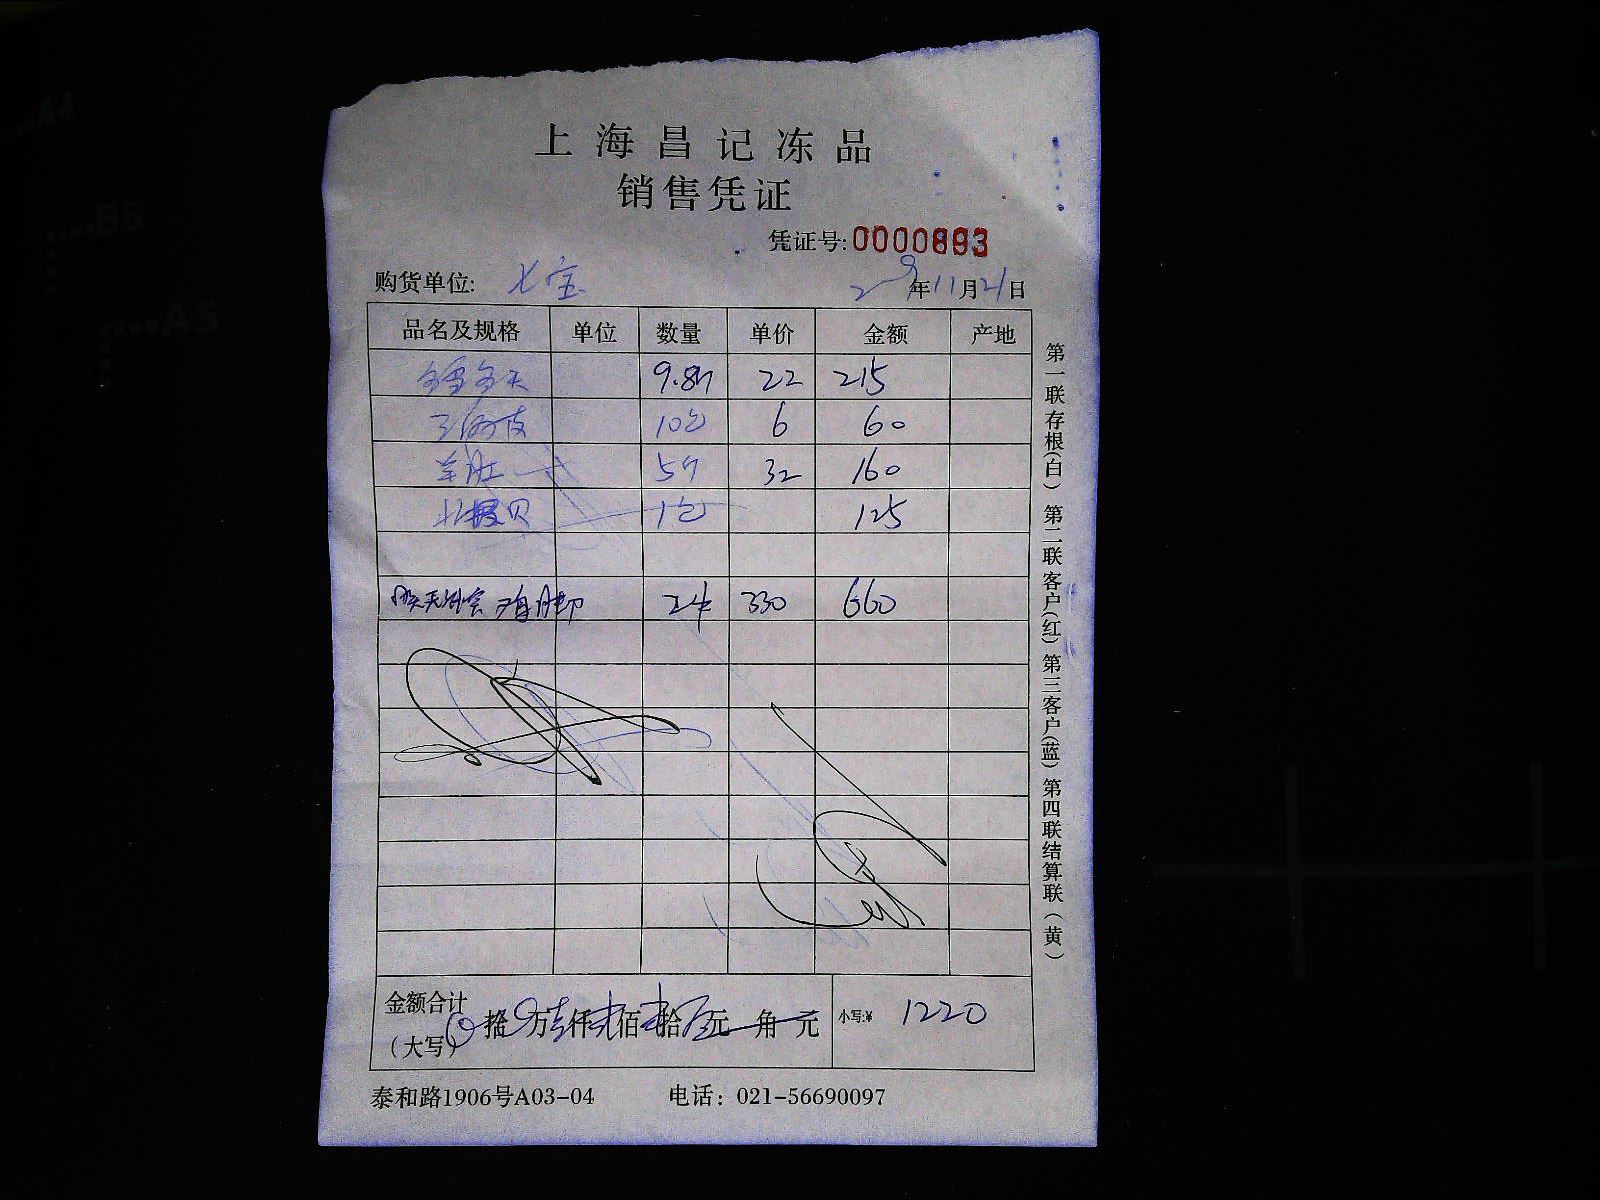 上海昌记冻品
销售凭证
凭证号:0000893
购货单位: 七宝 29年11月21日
品名及规格 单位 数量 单价 金额 产地
9.8斤 22 215
10包 6 60
羊肚 5斤 32 160
北极贝 1包 125
鸡脚 2件 330 660
金额合计
(大写) 拾 万 仟 佰 拾 元 角 元 小写:¥ 1220
泰和路1906号A03-04 电话: 021-56690097
第一联存根(白) 第二联客户(红) 第三客户(蓝) 第四联结算联(黄)
A4
B5
A5